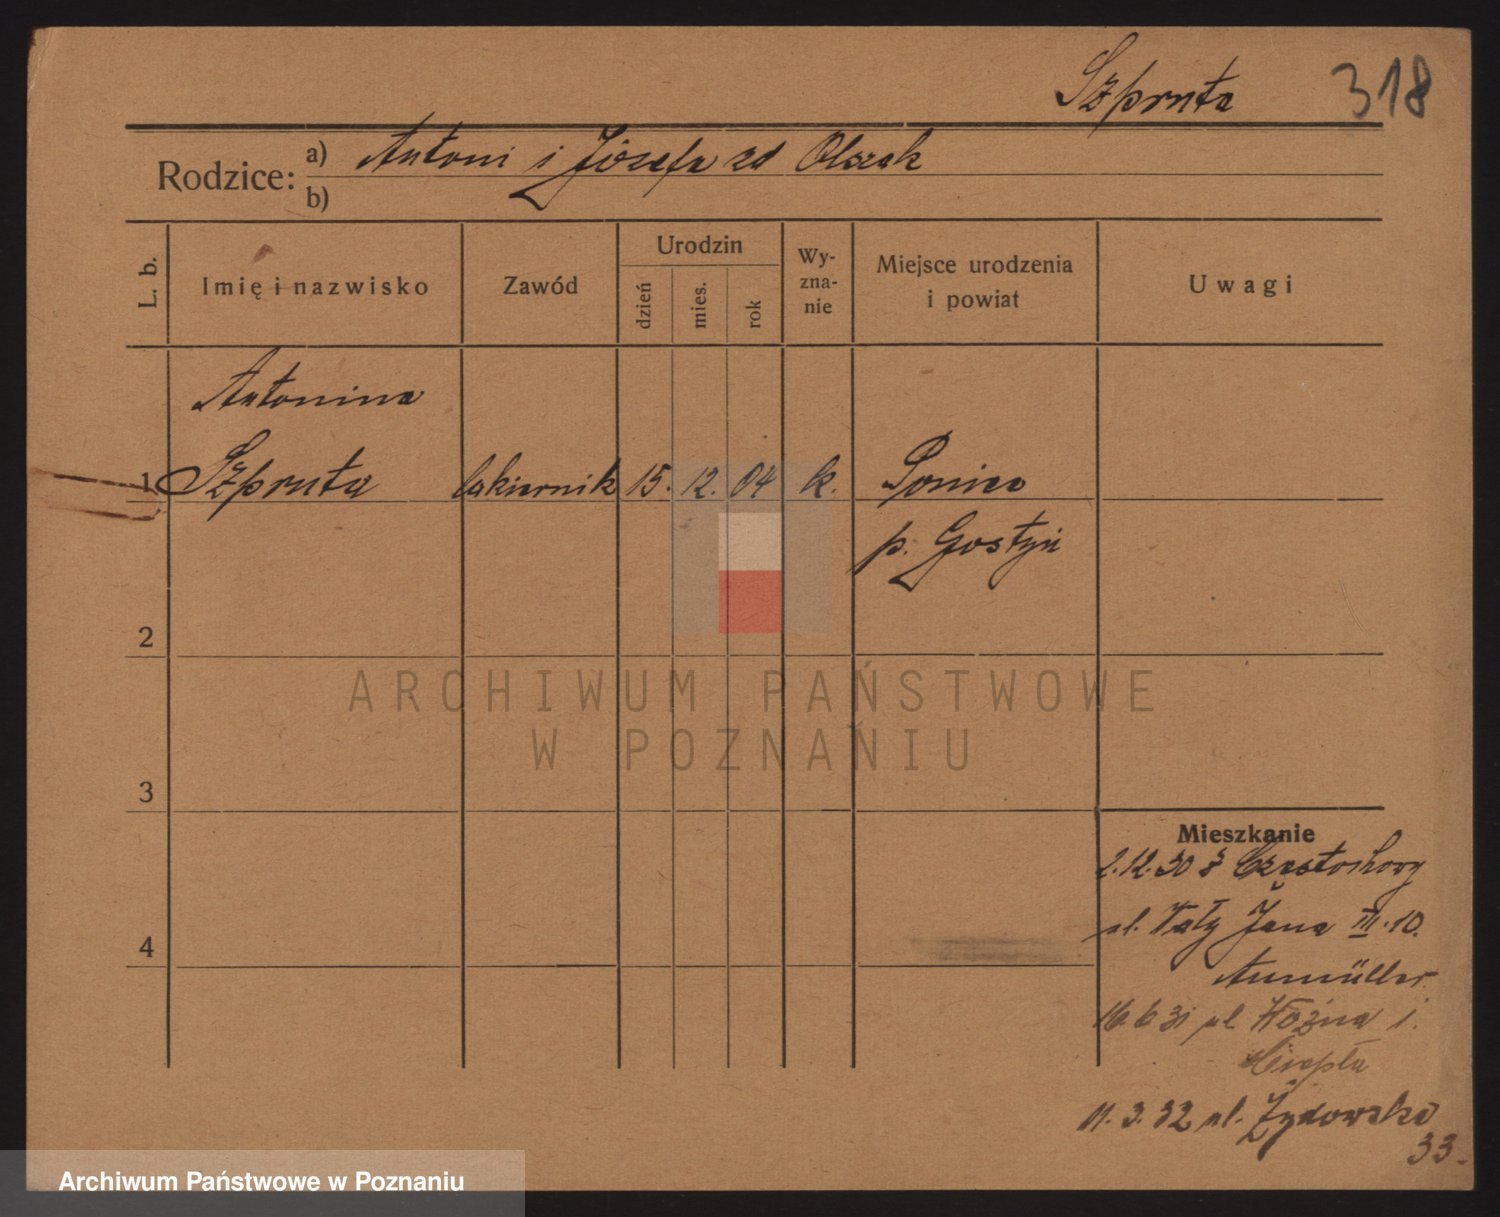 Szpruta 318
Rodzice: a) Antoni i Józefa zd Olszak
b)
L. b.
Imię i nazwisko
Zawód
Urodzin
dzień
mies.
rok
Wy-
zna-
nie
Miejsce urodzenia
i powiat
Uwagi
Antonina
1 Szpruta lakiernik 15. 12. 04 k. Poniec
p. Gostyń
2
3
4
Mieszkanie
2.12.30 z Częstochowy
ul. Wały Jana III. 10.
Aumüller
16 6 31 ul Woźna 1.
Ciepła
11.3.32 ul. Żydowska
33.
ARCHIWUM PAŃSTWOWE
W POZNANIU
Archiwum Państwowe w Poznaniu